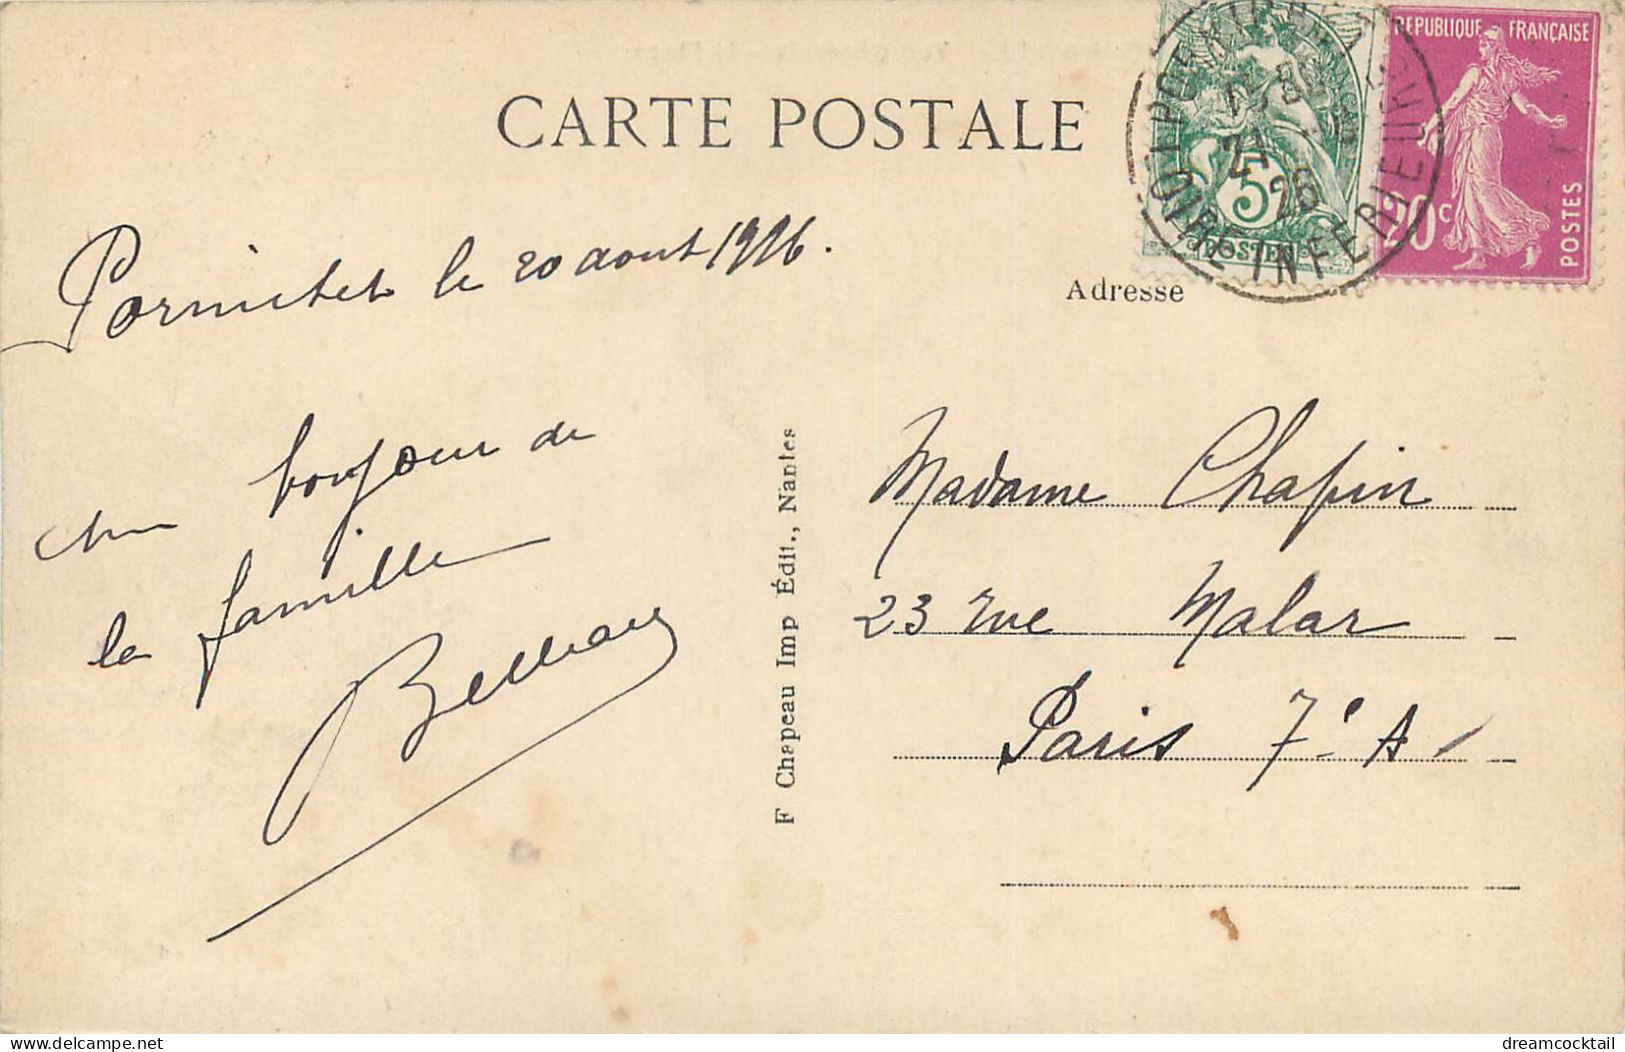 CARTE POSTALE
REPUBLIQUE FRANÇAISE
20c
POSTES
5
POSTES
21
26
LOIRE INFERIEURE
Adresse
Pornichet le 20 aout 1926.
un bonjour de
la famille
F Chapeau Imp Édit., Nantes
Madame Chapin
23 rue Malar
Paris 7e A
dreamcocktail